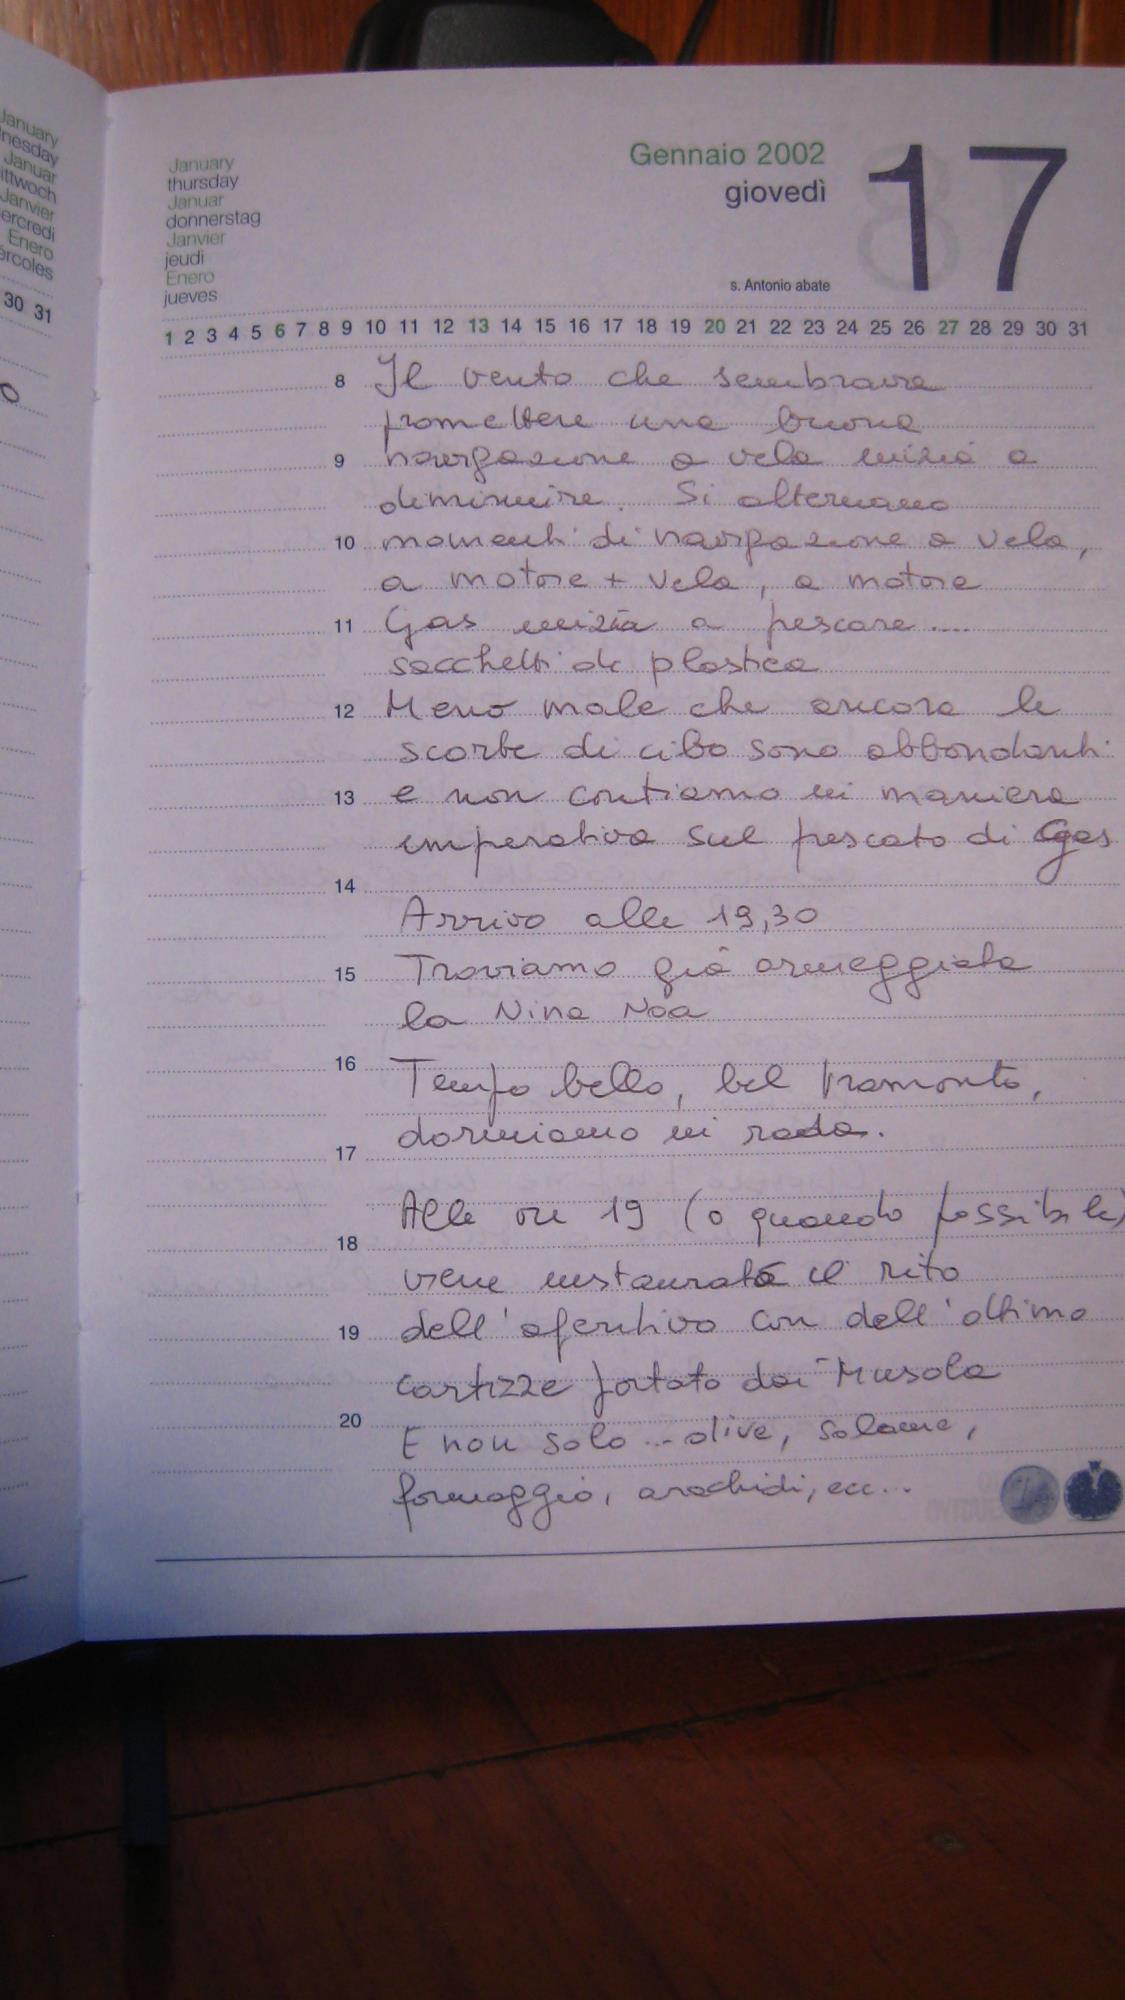 January
nesday
Januar
ittwoch
Janvier
ercredi
Enero
ércoles
30 31
January
thursday
Januar
donnerstag
Janvier
jeudi
Enero
jueves
Gennaio 2002
giovedì
17
s. Antonio abate
1 2 3 4 5 6 7 8 9 10 11 12 13 14 15 16 17 18 19 20 21 22 23 24 25 26 27 28 29 30 31
8 Il vento che sembrava
promettere una buona
9 navigazione a vela inizia a
diminuire. Si alternano
10 momenti di navigazione a vela,
a motore + vela, a motore
11 Gas inizia a pescare ....
sacchetti di plastica
12 Meno male che ancora le
scorte di cibo sono abbondanti
13 e non contiamo in maniera
imperativa sul pescato di Gas
14
Arrivo alle 19,30
15 Troviamo già ormeggiata
la Nina Noa
16
Tempo bello, bel tramonto,
dormiamo in rada.
17
Alle ore 19 (o quando possibile)
18
viene instaurato il rito
19 dell'aperitivo con dell'ottimo
cartizze portato dai Musola
20
E non solo ... olive, salame,
formaggio, arachidi, ecc...